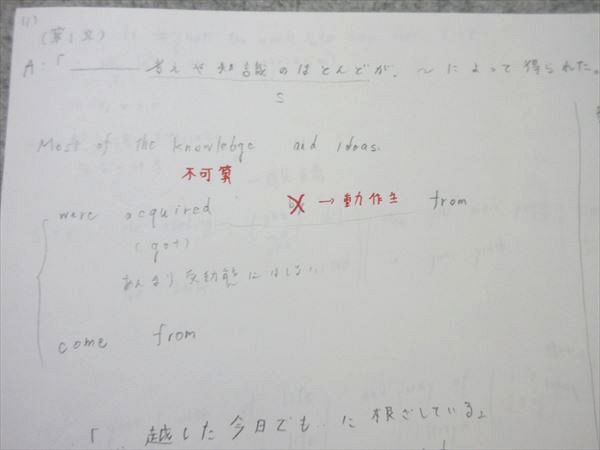 (第1文)
A:「 考えや知識のほとんどが、~によって得られた。
S
Most of the knowlebge and ideas.
不可算
were acquired by → 動作主 from
(got)
あんまり受動態にはしない
come from
「 越した今日でも に根ざしている」